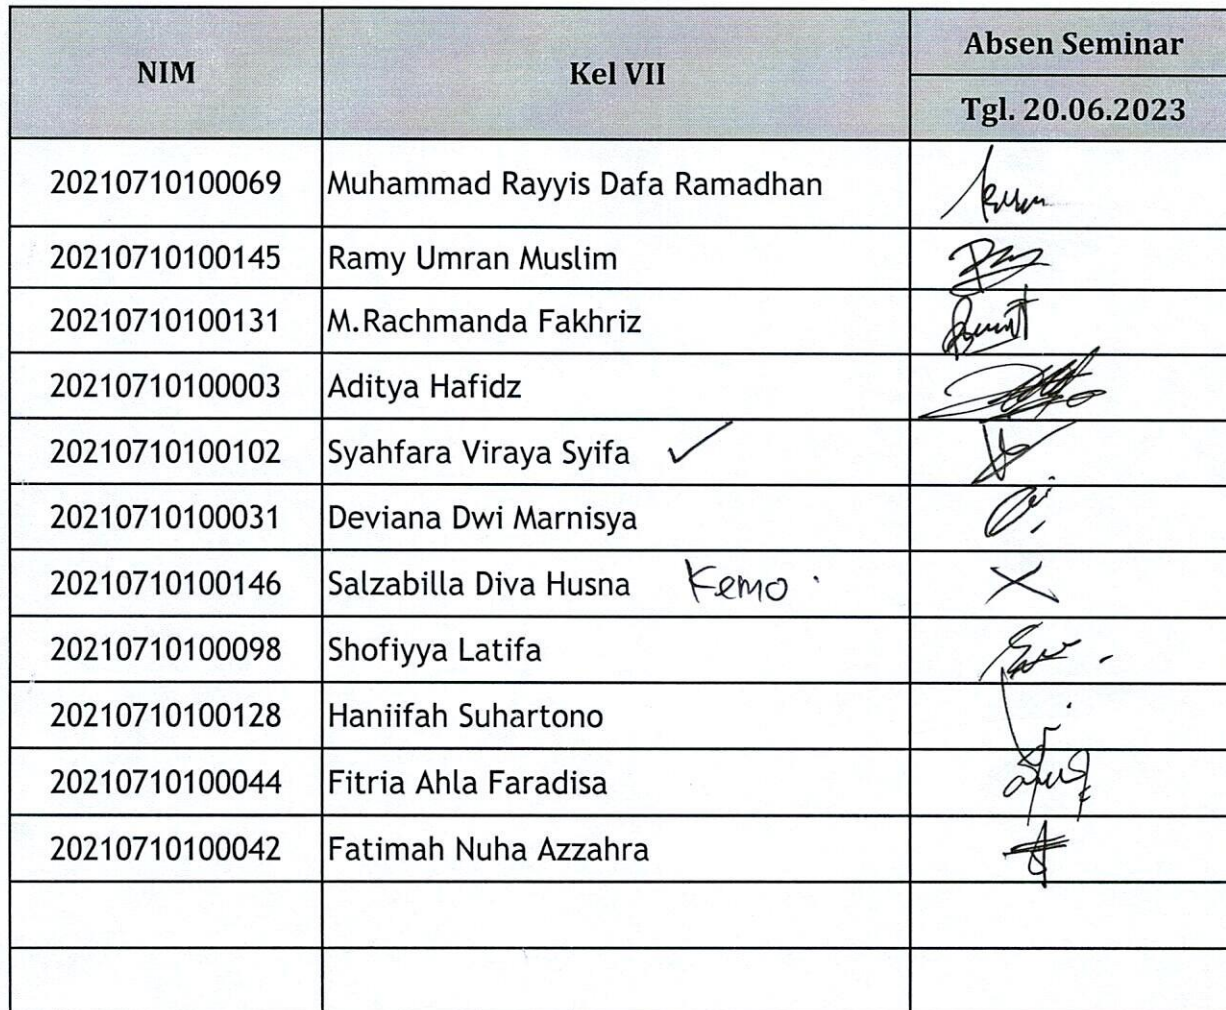 NIM Kel VII Absen Seminar
Tgl. 20.06.2023
20210710100069 Muhammad Rayyis Dafa Ramadhan
20210710100145 Ramy Umran Muslim
20210710100131 M.Rachmanda Fakhriz
20210710100003 Aditya Hafidz
20210710100102 Syahfara Viraya Syifa ✓
20210710100031 Deviana Dwi Marnisya
20210710100146 Salzabilla Diva Husna Kemo. X
20210710100098 Shofiyya Latifa
20210710100128 Haniifah Suhartono
20210710100044 Fitria Ahla Faradisa
20210710100042 Fatimah Nuha Azzahra